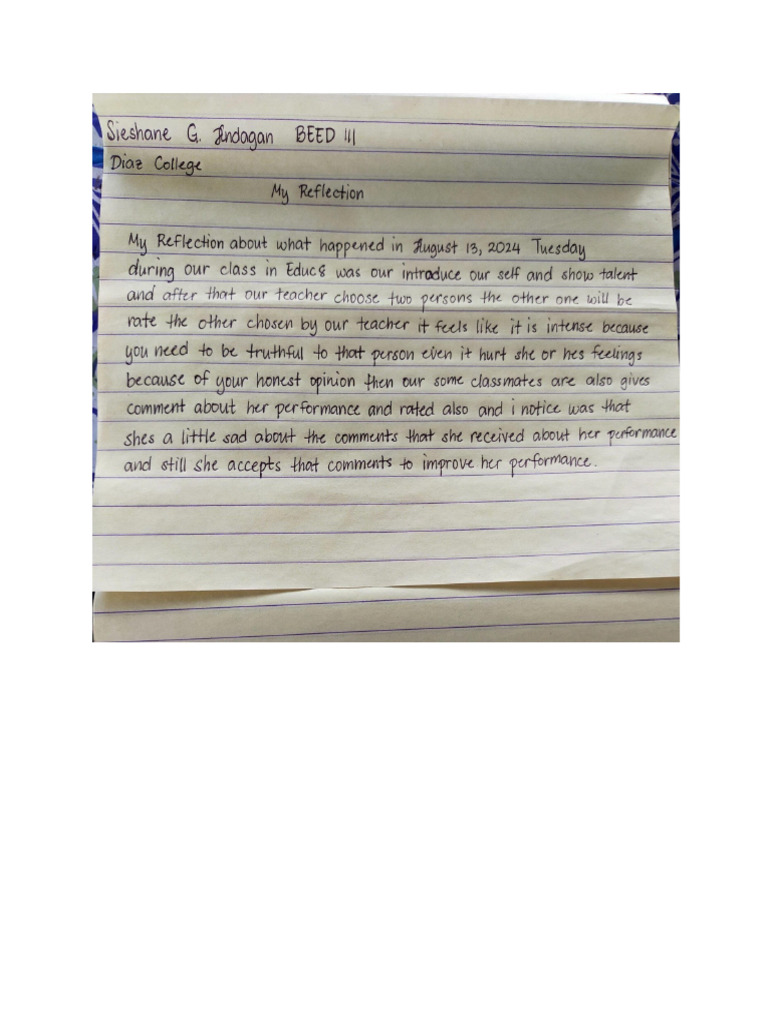 Sieshane G. Andagan BEED III
Diaz College
My Reflection
My Reflection about what happened in August 13, 2024 Tuesday
during our class in Educ8 was our introduce our self and show talent
and after that our teacher choose two persons the other one will be
rate the other chosen by our teacher it feels like it is intense because
you need to be truthful to that person even it hurt she or hes feelings
because of your honest opinion then our some classmates are also gives
comment about her performance and rated also and i notice was that
shes a little sad about the comments that she received about her performance
and still she accepts that comments to improve her performance.